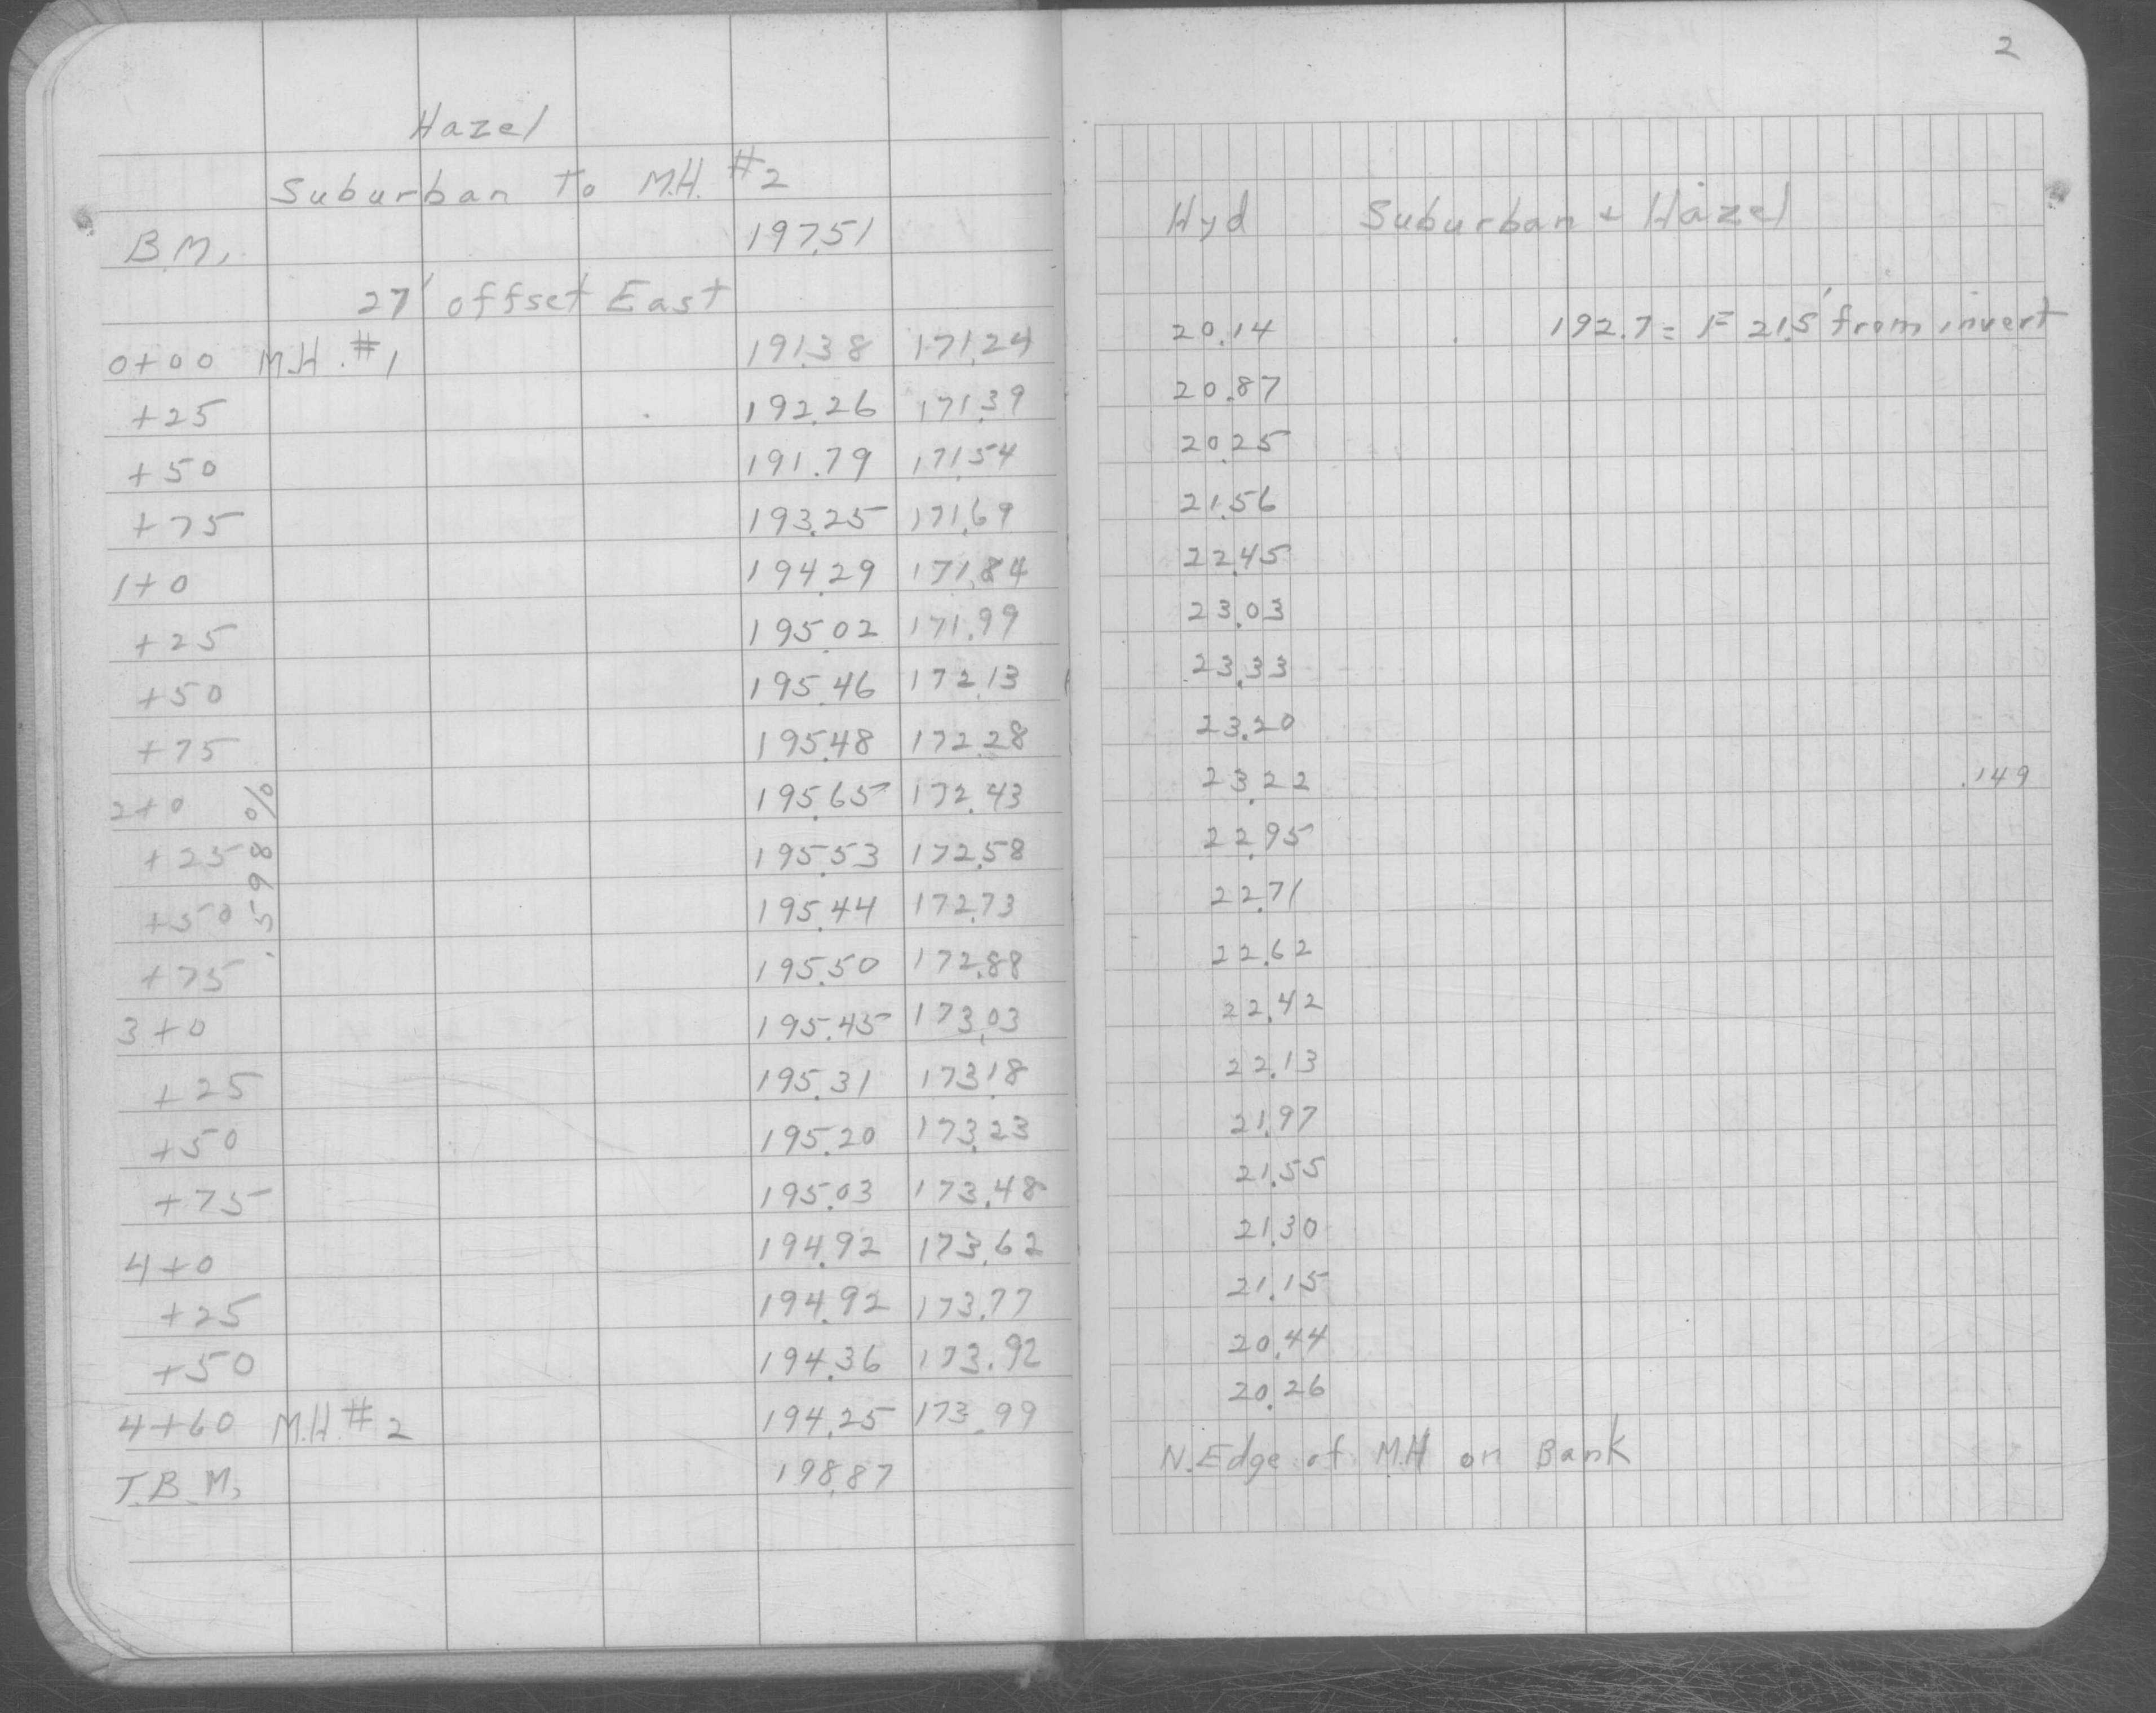 2
Hazel
Suburban to M.H. #2
B.M. 197.51 Hyd Suburban + Hazel
27' offset East
0+00 M.H. #1 191.38 171.24 20.14 192.7 = F 21.5' from invert
+25 192.26 171.39 20.87
+50 191.79 171.54 20.25
+75 193.25 171.69 21.56
1+0 194.29 171.84 22.45
+25 195.02 171.99 23.03
+50 195.46 172.13 23.33
+75 195.48 172.28 23.20
2+0 195.65 172.43 23.22 .149
+25 195.53 172.58 22.95
+50 195.44 172.73 22.71
+75 195.50 172.88 22.62
.598%
3+0 195.45 173.03 22.42
+25 195.31 173.18 22.13
+50 195.20 173.23 21.97
+75 195.03 173.48 21.55
4+0 194.92 173.62 21.30
+25 194.92 173.77 21.15
+50 194.36 173.92 20.44
4+60 M.H. #2 194.25 173.99 20.26
T.B.M. 198.87 N. Edge of M.H on Bank